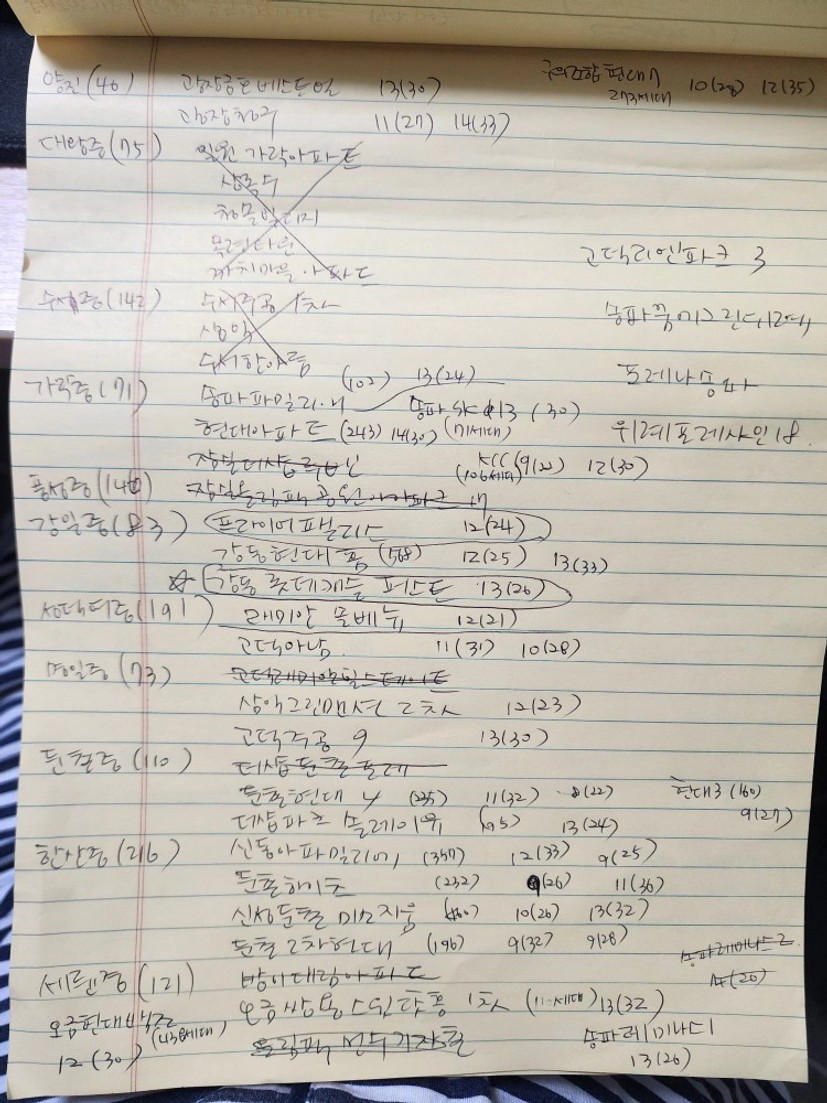 양진(46) 광장금호베스트빌 13(30) 구의조합현대7 10(28) 12(35)
273세대
광장청구 11(27) 14(33)
대왕중(75) 일원 가락아파트
상록수
청솔빌리지
목련타운
까치마을 아파트
고덕리엔파크 3
수서중(142) 수서주공 1차
삼익
송파꿈에그린위례
수서한아름
가락중(71) 송파파밀리에 (102) 13(24) 포레나송파
송파 SK 13 (30)
현대아파트 (243) 14(30) (71세대) 위례포레샤인 18
KCC 9(22) 12(30)
(106세대)
풍성중(140) 잠실올림픽공원아이파크
강일중(83) 프라이어팰리스 12(24)
강동현대홈 (568) 12(25) 13(33)
☆ 강동 롯데캐슬 퍼스트 13(26)
성덕여중(191) 래미안 솔베뉴 12(21)
고덕아남 11(31) 10(28)
명일중(73) 고덕래미안힐스테이트
삼익그린맨션 2차 12(23)
고덕주공 9 13(30)
둔촌중(110) 더샵둔촌포레
둔촌현대 4 (235) 11(32) 8(22) 현대3 (160)
9(27)
더샵파크 솔레이유 (95) 13(24)
한산중(216) 신동아파밀리에 (357) 12(33) 9(25)
둔촌하이츠 (232) 9(26) 11(36)
신성둔촌미소지움 (460) 10(26) 13(32)
둔촌 2차현대 (196) 9(32) 9(28) 송파레미니스2
14(20)
세륜중(121) 방이대림아파트
오금현대백조 (438세대) 오금쌍용스윗닷홈 1차 13(32)
12(30) 올림픽선수기자촌 송파레미니스
13(26)